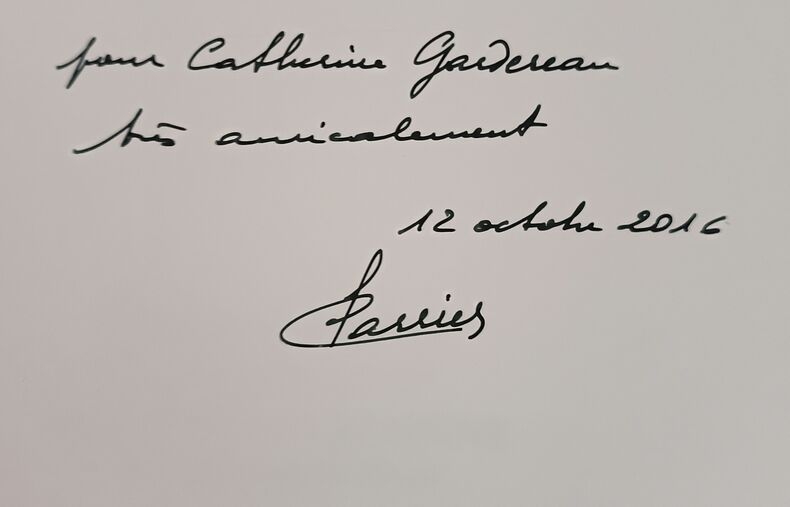 pour Catherine Gardereau
très amicalement
12 octobre 2016